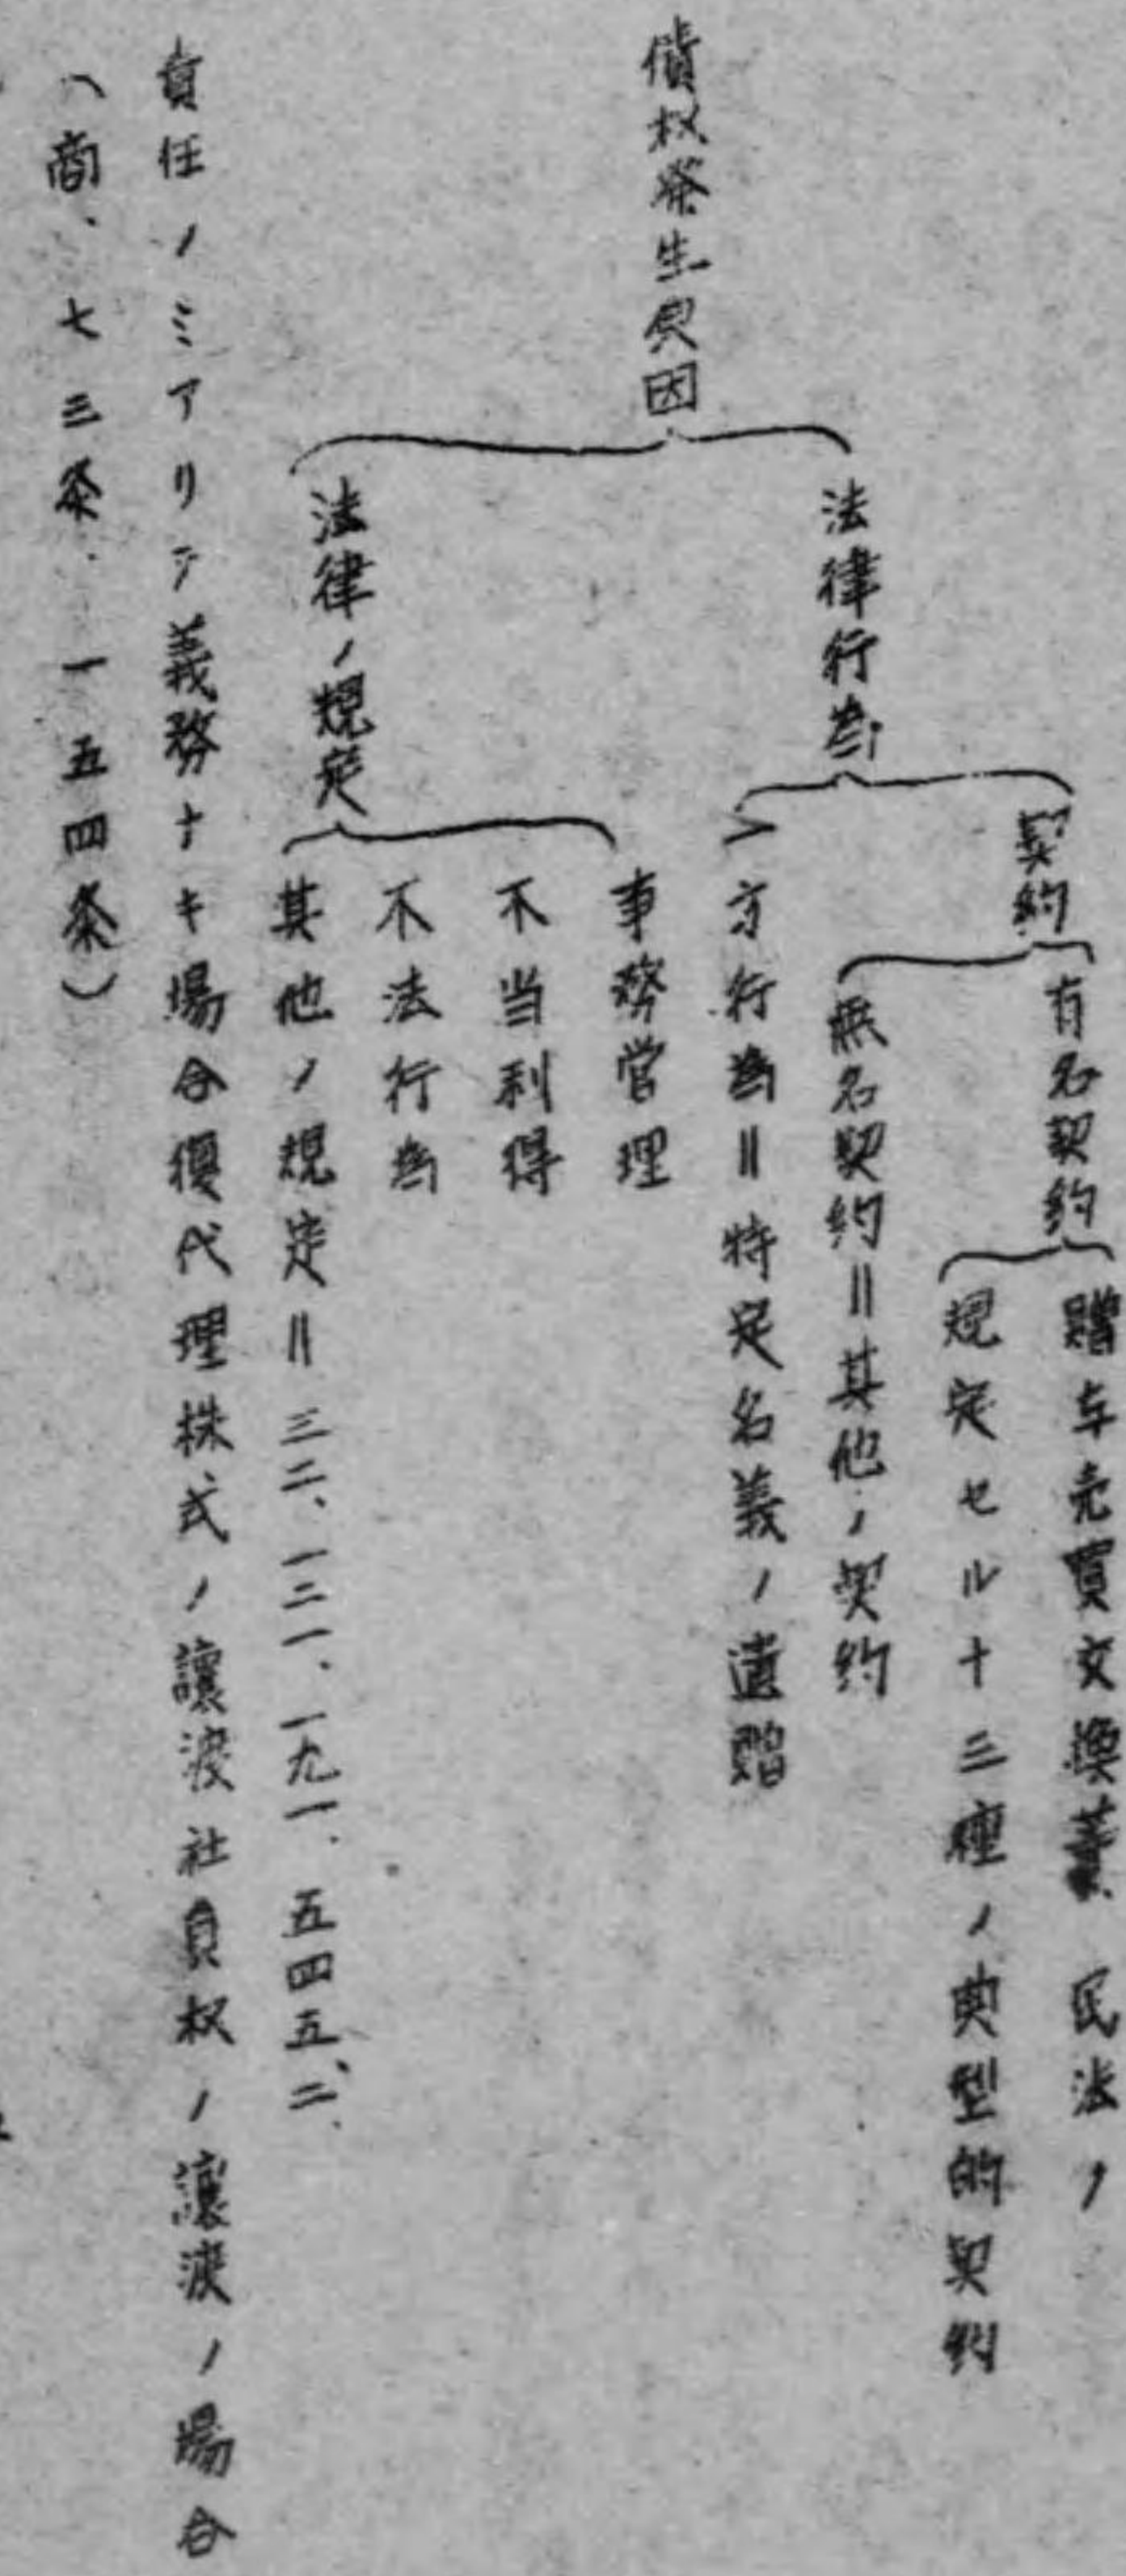 債权発生原因
法律行為
契約
有名契約
贈与売買交換等、民法ノ
規定セル十三種ノ典型的契約
無名契約＝其他ノ契約
一方行為＝特定名義ノ遺贈
法律ノ規定
事務管理
不当利得
不法行為
其他ノ規定＝三二、一三一、一九一、五四五、二、
責任ノミアリテ義務ナキ場合復代理株式ノ譲渡社員权ノ譲渡ノ場合
（商、七三条、一五四条）